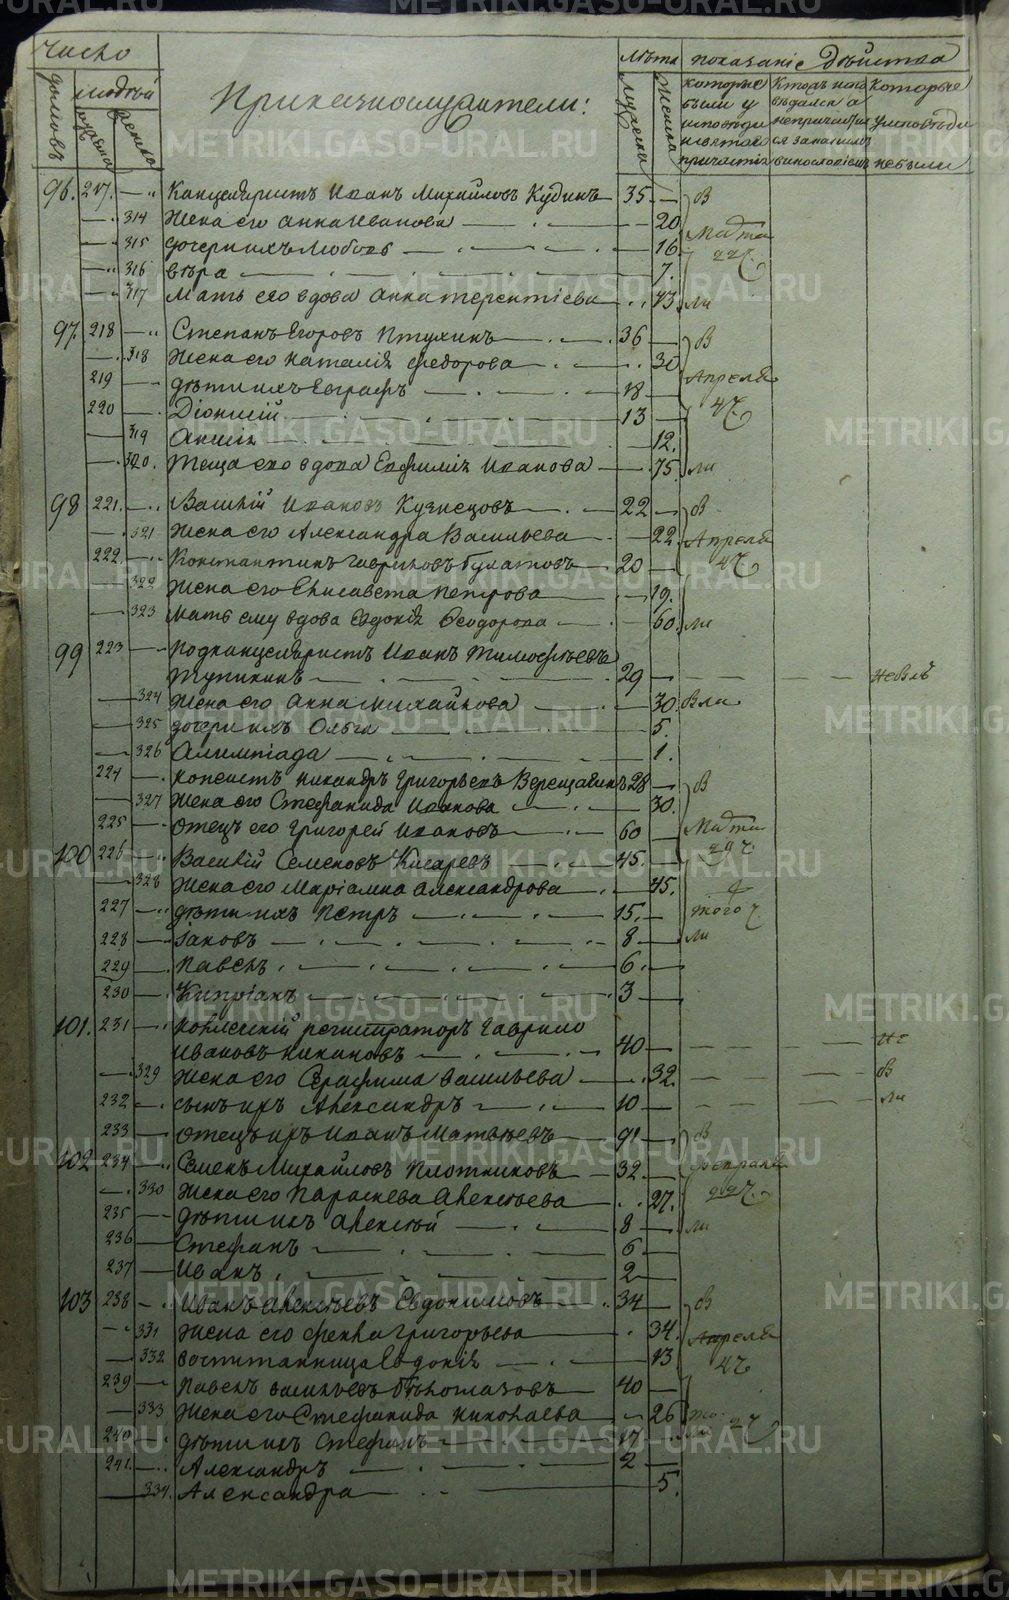 Число
домовъ
людей
мужеска
женска
Приказнослужители:
Лѣта
мужеска
женска
показаніе Действа
которые были у исповѣди и святаго причастія
Которые
у исповѣди
не были
96. 217. Канцеляристъ Иванъ Михайловъ Кудинъ 35
314 жена его Анна Иванова 20
315 дочери ихъ Любовь 16
316 вѣра 7.
317 Мать его вдова Анна терентіева 73.
В
Марта
22 ч.
ли
97. 218 Степанъ Егоровъ Птухинъ 36
318 жена его Наталія федорова 30
219 дѣти ихъ Евграфъ 18
220 Діонисій 13
319 12.
320. теща его вдова Евфимія Иванова 75.
В
Апреля
4 ч.
ли
98 221. Василій Ивановъ Кузнецовъ 22
321 жена его Александра Васильева 22
222 Константинъ Гавриловъ Булатовъ 20
322 жена его Елисавета петрова 19.
323 мать ему вдова Евдокія Феодорова 60.
В
Апреля
4 ч.
ли
99 223 подканцеляристъ Иванъ Тимофѣевъ
Тупикинъ 29 небылъ
324 жена его Анна михайлова 30. Вли
325 дочери ихъ Ольга 5.
326 Алимпіада 1.
224 копеистъ никандръ Григорьевъ Верещагинъ 28
327 жена его Стефанида Иванова 30.
225 отецъ его григорей ивановъ 60
В
Марта
29 ч.
100 226 Василій Семеновъ Кисаревъ 45.
328 жена его Маріамна александрова 45.
227 дѣти ихъ петръ 15.
228 Іаковъ 8
229 павелъ 6.
230 Кипріанъ 3
того ч.
ли
101. 231 коллескій регистраторъ Гаврило
ивановъ никановъ 40 не
329 жена его Серафима васильева 32. в
232 сынъ ихъ Александръ 10 ли
233 отецъ ихъ Иванъ Матвѣевъ 91
102 234 Семенъ Михайловъ Плотниковъ 32
330 жена его Параскева Алексѣева 27.
235 дѣти ихъ Алексѣй 8
236 Стефанъ 6
237 иванъ 2
В
февраля
ли
103 238 Иванъ Алексѣевъ Евдокимовъ 34
331 жена его фекла григорьева 34.
332 воспитанница Евдокія 13
239 павелъ васильевъ Бѣломазовъ 40
333 жена его Стефанида николаева 26
240 дѣти ихъ Стефанъ
241. Александръ 2
334. Александра 5.
В
Апреля
4 ч
METRIKI.GASO-URAL.RU